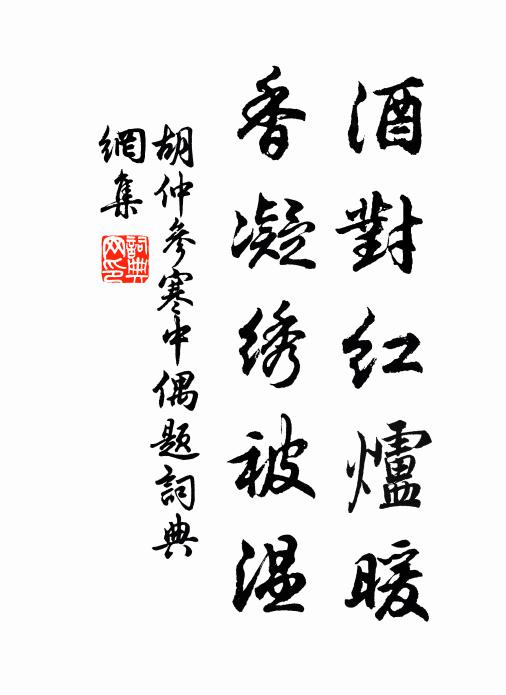 酒對紅爐暖
香凝绣被温
胡仲參寒中偶題詞典
網集
詞典
网印